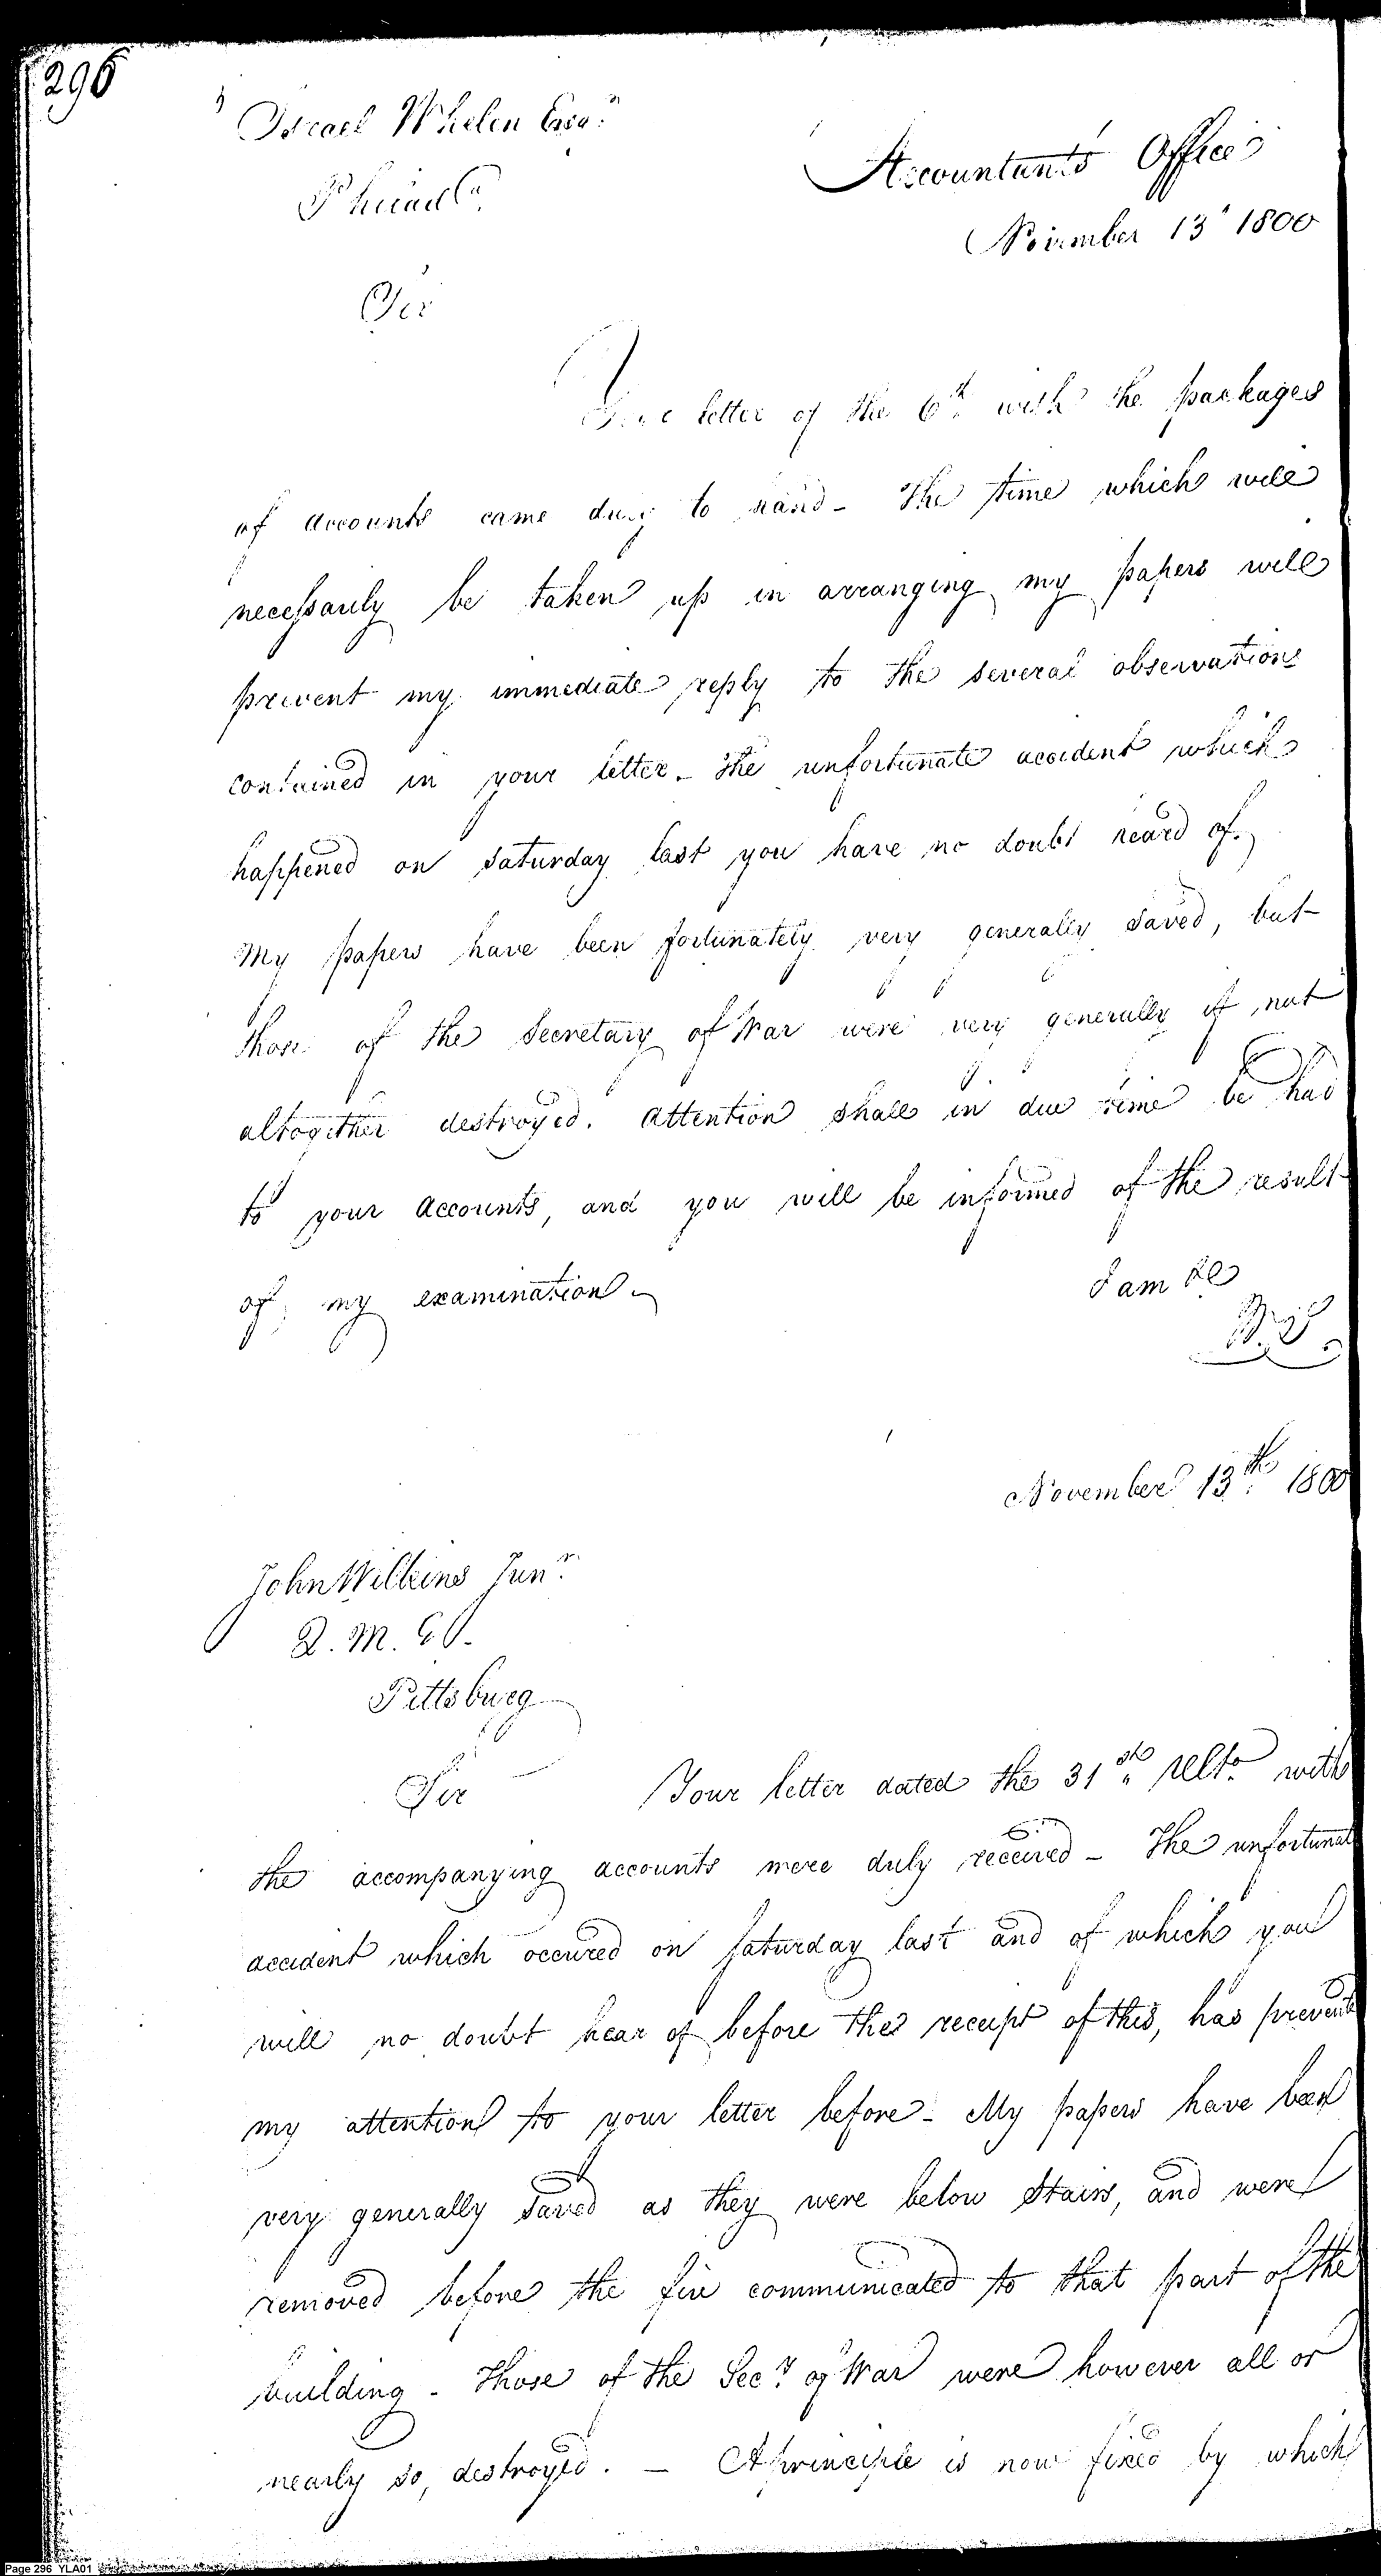 296
Israel Whelen Esqr.
Philada.
Accountant's Office
November 13" 1800
Sir
Your letter of the 6th. with the packages
of accounts came duly to hand - The time which will
necessarily be taken up in arranging my papers will
prevent my immediate reply to the several observations
contained in your letter - The unfortunate accident which
happened on Saturday last you have no doubt heard of.
My papers have been fortunately very generally saved, but
those of the Secretary of War were very generally if not
altogether destroyed. Attention shall in due time be had
to your accounts, and you will be informed of the result
of my examination -
I am &c
W. S.
November 13th. 1800
John Wilkins Junr.
Q. M. G.
Pittsburg
Sir Your letter dated the 31st. Ulto. with
the accompanying accounts were duly received - The unfortunat
accident which occured on Saturday last and of which you
will no doubt hear of before the receipt of this, has prevente
my attention to your letter before - My papers have been
very generally saved as they were below Stairs, and were
removed before the fire communicated to that part of the
building - Those of the Secy. of War were however all or
nearly so, destroyed. - A principle is now fixed by which
Page 296 YLA01